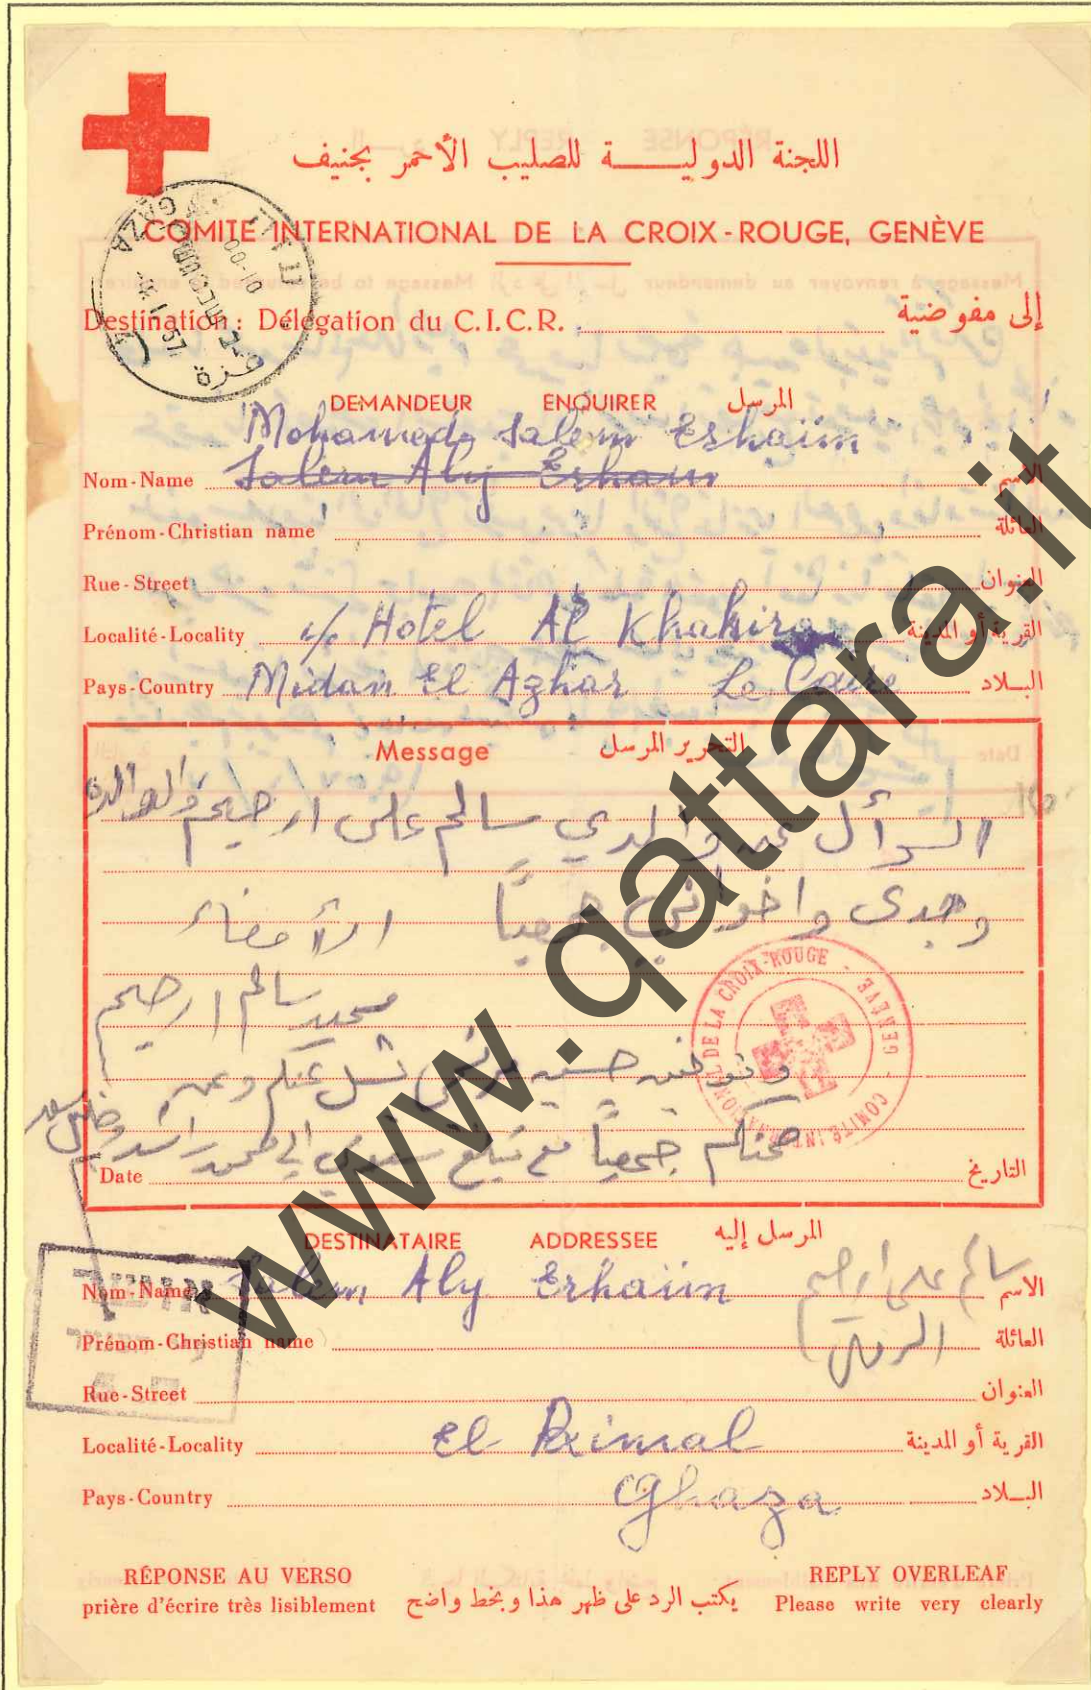 اللجنة الدوليـــة للصليب الأحمر بجنيف
COMITÉ INTERNATIONAL DE LA CROIX-ROUGE, GENÈVE
Destination: Délégation du C.I.C.R. إلى مفوضية
DEMANDEUR ENQUIRER المرسل
Mohamed Salem Erhaïm
Nom-Name Salem Aly Erhaim الاسم
Prénom-Christian name العائلة
Rue-Street العنوان
Localité-Locality c/o Hotel Al Khahira القرية أو المدينة
Pays-Country Midan El Azhar Le Caire البـلاد
Message التحرير المرسل
السؤال عن والدي سالم على ارحيم والوالدة
وجدى واخواني جميعاً الأمضاء
محمد سالم ارحيم
عنكم وعن
صحتكم جميعاً مع
Date التاريخ
COMITÉ INTERNATIONAL DE LA CROIX-ROUGE - GENEVE -
GAZA
غزة
DESTINATAIRE ADDRESSEE المرسل إليه
Nom-Name Salem Aly Erhaïm سالم على ارحيم الاسم
Prénom-Christian name الرمال العائلة
Rue-Street العنوان
Localité-Locality El Rimal القرية أو المدينة
Pays-Country Ghaza البـلاد
RÉPONSE AU VERSO REPLY OVERLEAF
prière d'écrire très lisiblement يكتب الرد على ظهر هذا وبخط واضح Please write very clearly
www.qattara.it